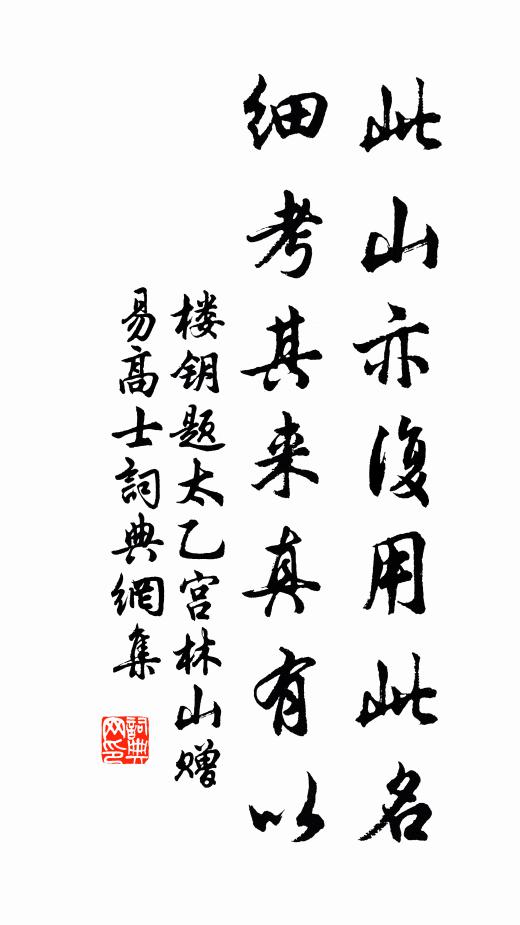 此山亦復用此名
细考其来真有以
楼钥题太乙宫林山赠
易高士詞典網集
詞典
网印